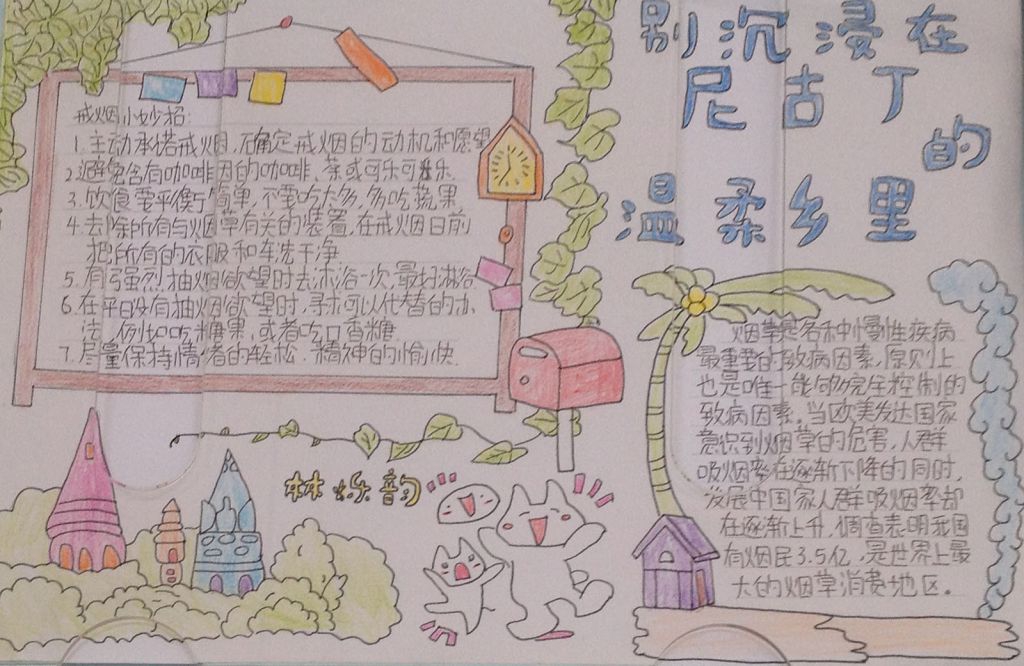 别沉浸在
尼古丁
的
温柔乡里
戒烟小妙招:
1.主动承诺戒烟,确定戒烟的动机和愿望
2.避免含有咖啡因的咖啡、茶或可乐可乐.
3.饮食要平衡简单,不要吃太多,多吃蔬果
4.去除所有与烟草有关的装置,在戒烟日前
把所有的衣服和车洗干净
5.有强烈抽烟欲望时去沐浴一次,最好淋浴
6.在平时没有抽烟欲望时,寻求可以代替的办
法,例如吃糖果,或者吃口香糖
7.尽量保持情绪的轻松.精神的愉快.
烟草是各种慢性疾病
最重要的致病因素,原则上
也是唯一能够完全控制的
致病因素.当欧美发达国家
意识到烟草的危害,人群
吸烟率在逐渐下降的同时,
发展中国家人群吸烟率却
在逐渐上升,调查表明我国
有烟民3.5亿,是世界上最
大的烟草消费地区。
林烁韵